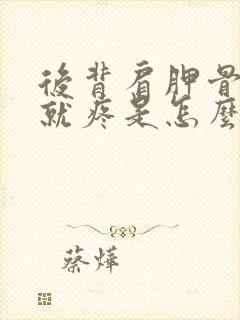 後背肩胛骨
就疼是怎麼
蔡燁